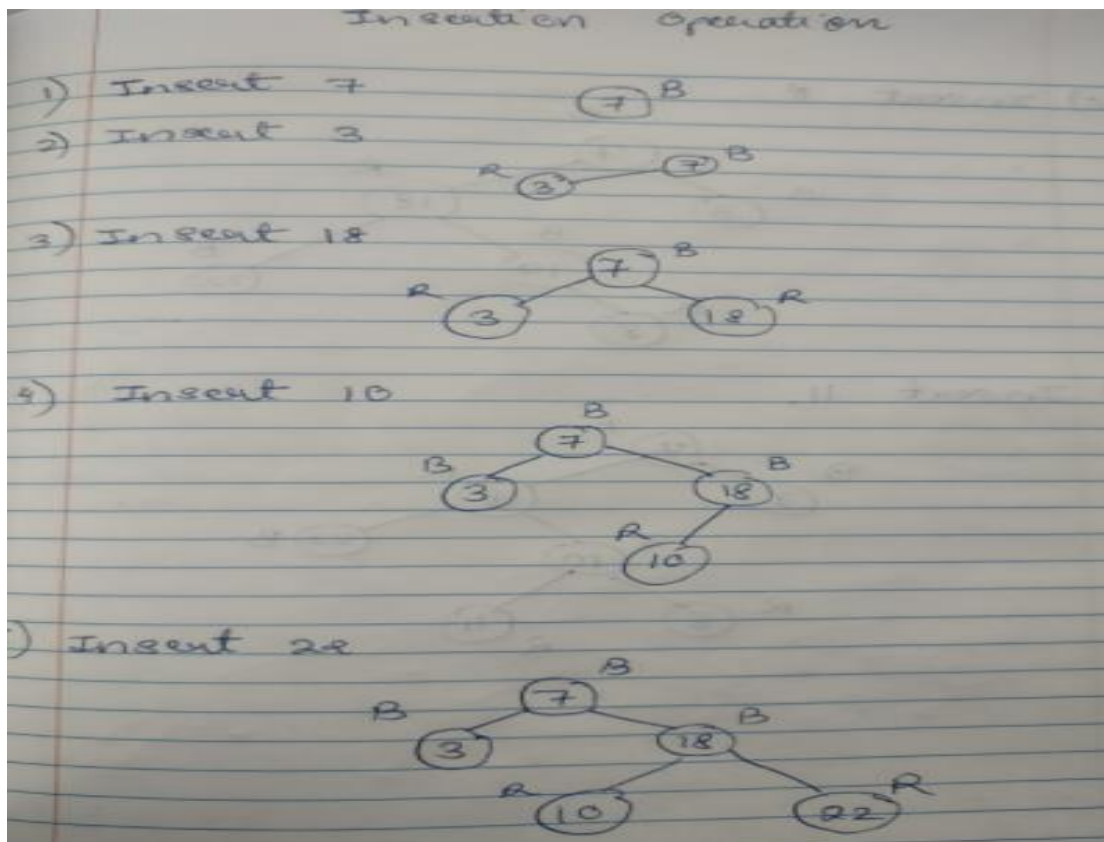 Insertion Operation
1) Insert 7
7 B
2) Insert 3
R 3 7 B
3) Insert 18
7 B
R 3 18 R
4) Insert 10
B
7
B 3 18 B
R
10
) Insert 22
B
7
B 3 18 B
R 10 22 R